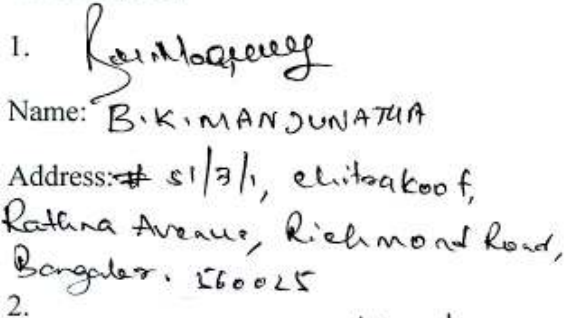 1.
Name: B.K. MANJUNATHA
Address: # 51/7/1, Chitrakoot,
Rathna Avenue, Richmond Road,
Bangalor. 560025
2.